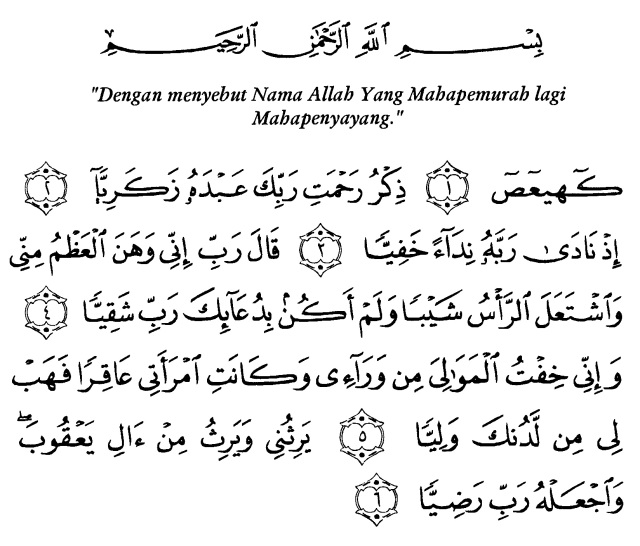 بِسْمِ ٱللَّهِ ٱلرَّحْمَٰنِ ٱلرَّحِيمِ
"Dengan menyebut Nama Allah Yang Mahapemurah lagi
Mahapenyayang."
كٓهيعٓصٓ ١ ذِكْرُ رَحْمَتِ رَبِّكَ عَبْدَهُۥ زَكَرِيَّآ ٢
إِذْ نَادَىٰ رَبَّهُۥ نِدَآءً خَفِيًّا ٣ قَالَ رَبِّ إِنِّى وَهَنَ ٱلْعَظْمُ مِنِّى
وَٱشْتَعَلَ ٱلرَّأْسُ شَيْبًا وَلَمْ أَكُنۢ بِدُعَآئِكَ رَبِّ شَقِيًّا ٤
وَإِنِّى خِفْتُ ٱلْمَوَٰلِىَ مِن وَرَآءِى وَكَانَتِ ٱمْرَأَتِى عَاقِرًا فَهَبْ
لِى مِن لَّدُنكَ وَلِيًّا ٥ يَرِثُنِى وَيَرِثُ مِنْ ءَالِ يَعْقُوبَ ۖ
وَٱجْعَلْهُ رَبِّ رَضِيًّا ٦